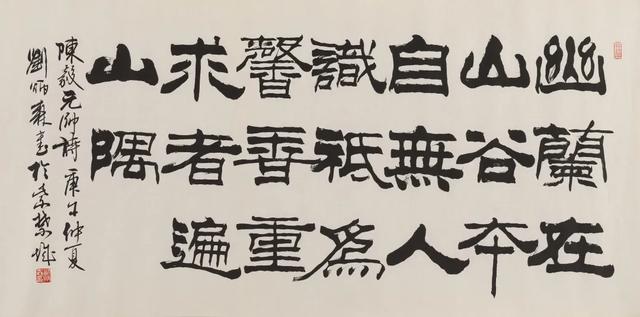 幽蘭在
山谷本
自無人
識祇為
馨香重
求者遍
山隅
陳毅元帥詩 庚午仲夏
劉炳森書於紫禁城